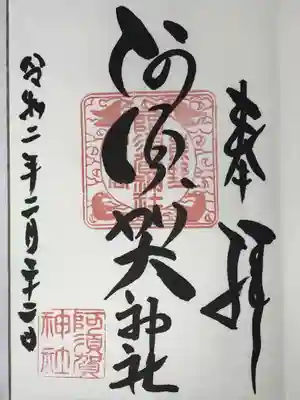 奉拝
阿須賀神社
令和二年二月二十二日
阿須賀
神社